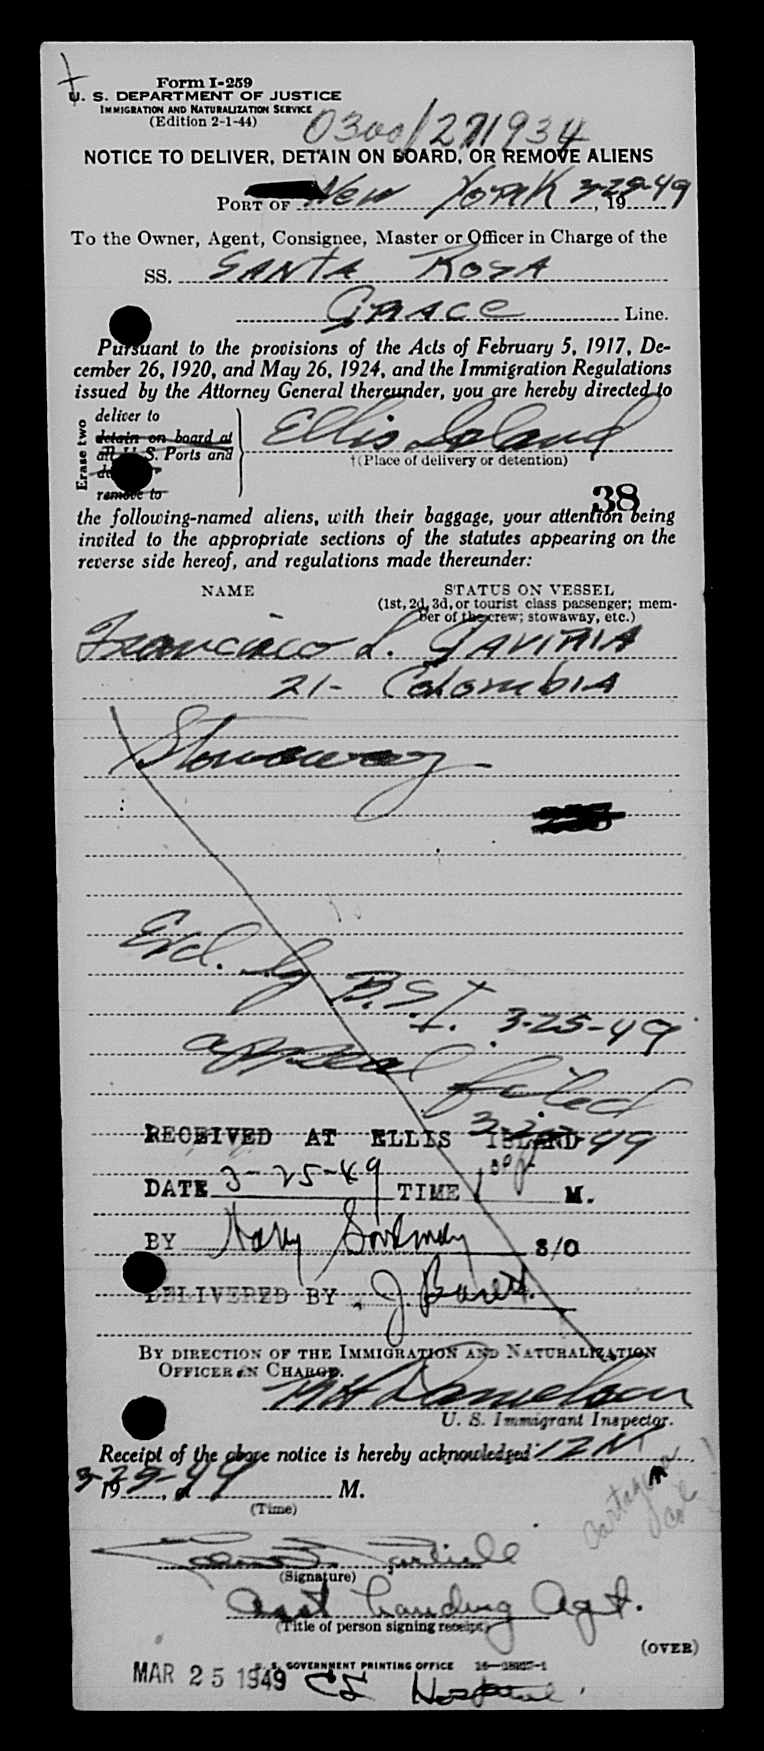 Form I-259
U. S. DEPARTMENT OF JUSTICE
IMMIGRATION AND NATURALIZATION SERVICE
(Edition 2-1-44)
0300/271934
NOTICE TO DELIVER, DETAIN ON BOARD, OR REMOVE ALIENS
PORT OF New York 3-25-49, 19
To the Owner, Agent, Consignee, Master or Officer in Charge of the
SS. SANTA ROSA
GRACE Line.
Pursuant to the provisions of the Acts of February 5, 1917, De-
cember 26, 1920, and May 26, 1924, and the Immigration Regulations
issued by the Attorney General thereunder, you are hereby directed to
Erase two
deliver to
detain on board at
all U. S. Ports and
remove to
Ellis Island
†(Place of delivery or detention)
38
the following-named aliens, with their baggage, your attention being
invited to the appropriate sections of the statutes appearing on the
reverse side hereof, and regulations made thereunder:
NAME STATUS ON VESSEL
(1st, 2d, 3d, or tourist class passenger; mem-
ber of the crew; stowaway, etc.)
Francisco L. GAVIRIA
21- Colombia
Stowaway
Exd. by B.S.I. 3-25-49
appeal filed
RECEIVED AT ELLIS ISLAND
DATE 3-25-49 TIME M.
BY S/O
DELIVERED BY J.
BY DIRECTION OF THE IMMIGRATION AND NATURALIZATION
OFFICER IN CHARGE.
M H Danielson
U. S. Immigrant Inspector.
Receipt of the above notice is hereby acknowledged 12 N
19 M.
(Time)
Cartagena
Col
(Signature)
Asst Landing Agt.
(Title of person signing receipt)
(OVER)
U. S. GOVERNMENT PRINTING OFFICE
MAR 25 1949 Hospital